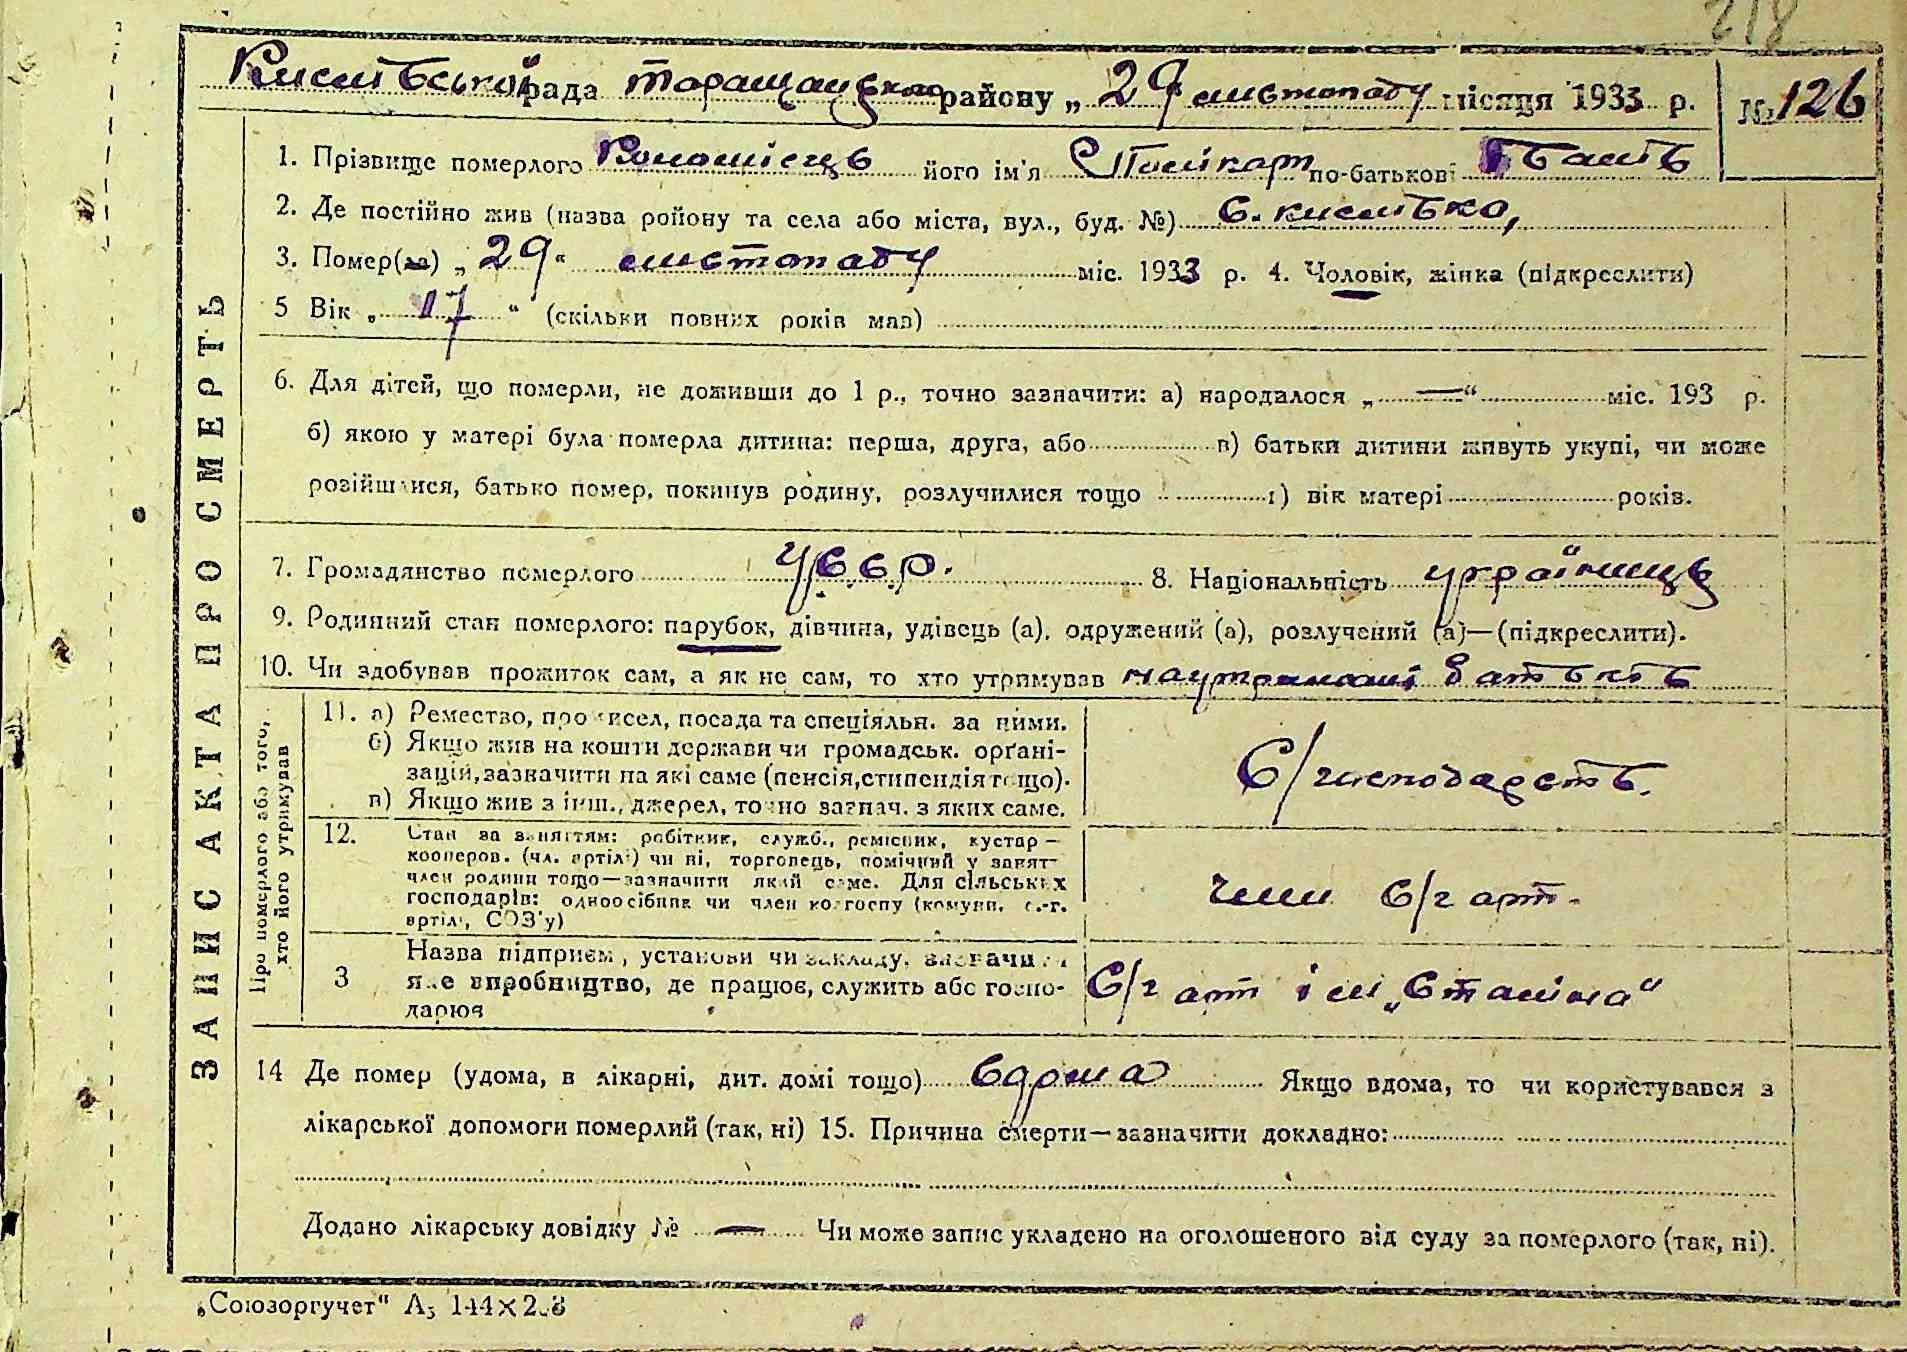 218
Кислівської рада Таращанського району „29" листопаду місяця 1933 р. № 126
1. Прізвище померлого Коломієць його ім'я Полікарп по-батькові Іванів
2. Де постійно жив (назва ройону та села або міста, вул., буд. №) с. Кислівка,
3. Помер(ла) „29" листопаду міс. 1933 р. 4. Чоловік, жінка (підкреслити)
5 Вік „17" (скільки повних років мав)
6. Для дітей, що померли, не доживши до 1 р., точно зазначити: а) народилося „—" міс. 193 р.
б) якою у матері була померла дитина: перша, друга, або в) батьки дитини живуть укупі, чи може
розійшлися, батько помер, покинув родину, розлучилися тощо г) вік матері років.
7. Громадянство померлого УССР. 8. Національність українець
9. Родинний стан померлого: парубок, дівчина, удівець (а), одружений (а), розлучений (а)—(підкреслити).
10. Чи здобував прожиток сам, а як не сам, то хто утримував на утриманні батьків
ЗАПИС АКТА ПРО СМЕРТЬ
Про померлого або того, хто його утримував
11. а) Ремество, промисел, посада та спеціяльн. за ними.
б) Якщо жив на кошти держави чи громадськ. орґані-
зацій, зазначити на які саме (пенсія, стипендія тощо).
в) Якщо жив з інш., джерел, точно зазнач. з яких саме.
С/господарств.
12. Стан за заняттям: робітник, служб., ремісник, кустар—
кооперов. (чл. артілі) чи ні, торговець, помічний у занят-
член родини тощо—зазначити який саме. Для сільських
господарів: одноосібник чи член колгоспу (комуни, с.-г.
артілі, СОЗ'у)
член с/г арт.
3 Назва підприєм, установи чи закладу, визначити
яке виробництво, де працює, служить або госпо-
дарює
С/г арт ім „Сталіна"
14 Де помер (удома, в лікарні, дит. домі тощо) вдома Якщо вдома, то чи користувався з
лікарської допомоги померлий (так, ні) 15. Причина смерти—зазначити докладно:
Додано лікарську довідку № — Чи може запис укладено на оголошеного від суду за померлого (так, ні).
„Союзоргучет" А₅ 144×2